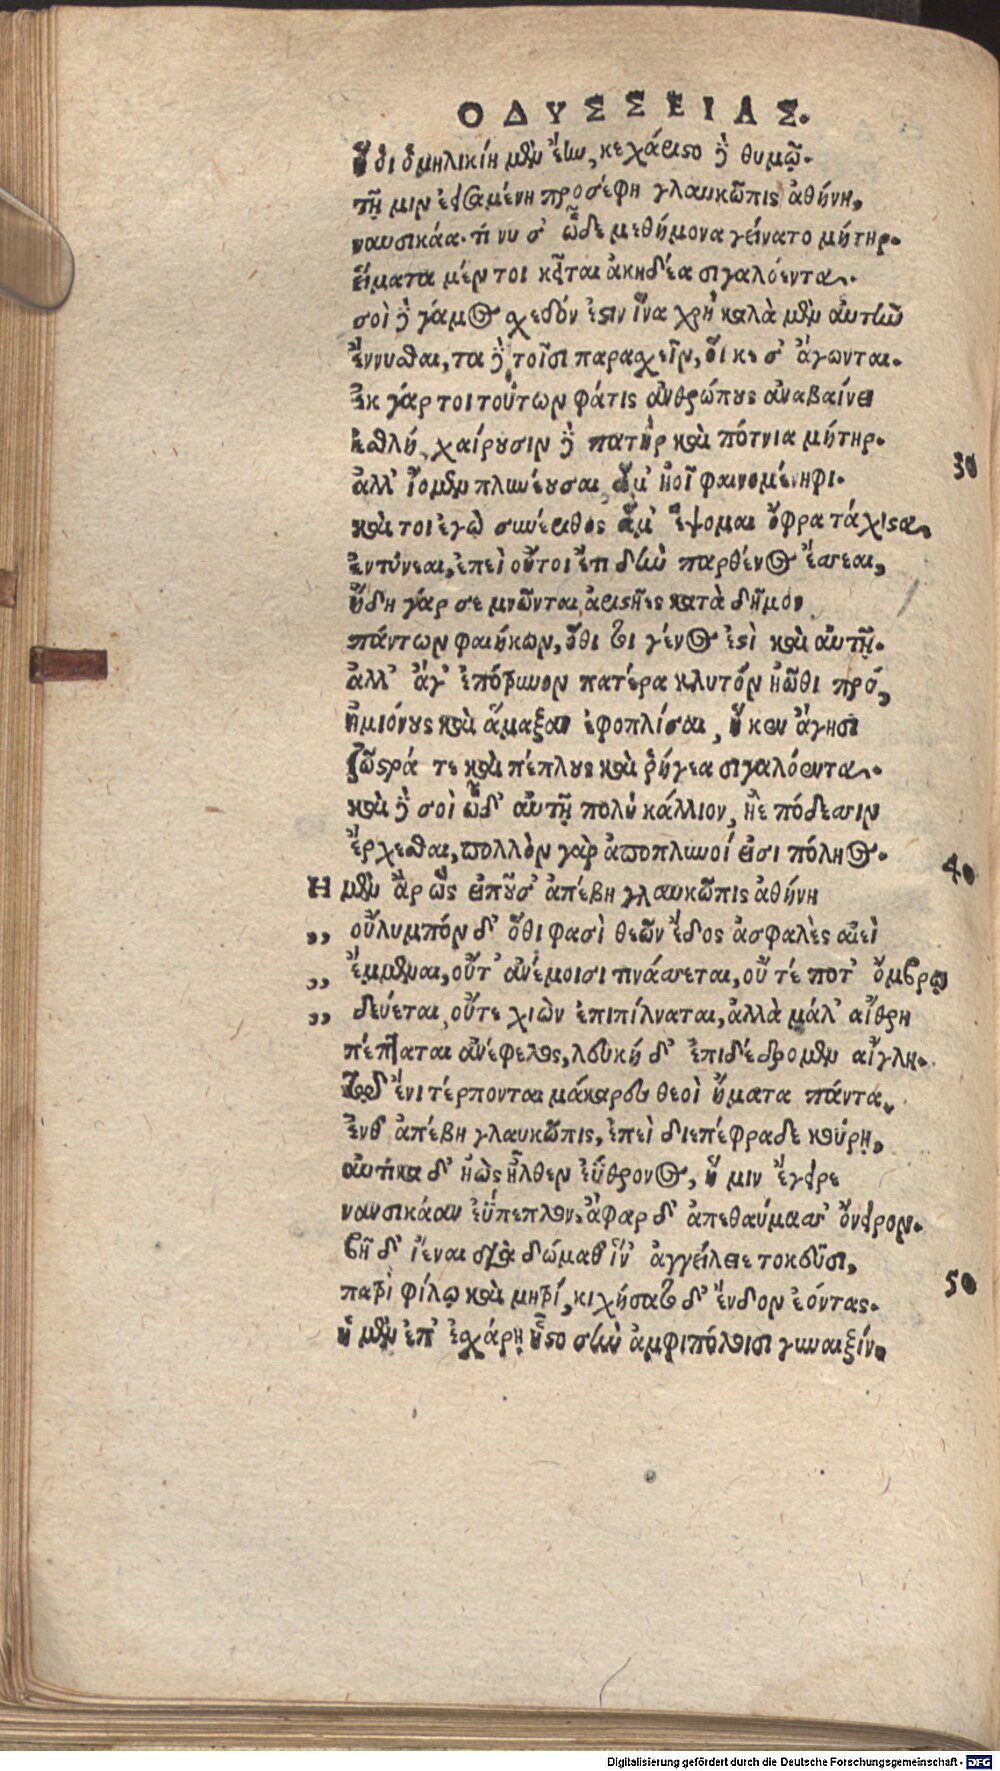 ΟΔΥΣΣΕΙΑΣ.
ἥ οἱ ὁμηλικίη μὲν ἔην, κεχάριστο δὲ θυμῷ.
τῇ μιν ἐεισαμένη προσέφη γλαυκῶπις ἀθήνη,
ναυσικάα. τί νυ σ' ὧδε μεθήμονα γείνατο μήτηρ.
εἵματα μέν τοι κεῖται ἀκηδέα σιγαλόεντα.
σοὶ δὲ γάμος σχεδόν ἐστιν ἵνα χρὴ καλὰ μὲν αὐτὴν
ἕννυσθαι, τὰ δὲ τοῖσι παρασχεῖν, οἵ κε σ' ἄγωνται.
ἐκ γάρ τοι τούτων φάτις ἀνθρώπους ἀναβαίνει
ἐσθλή, χαίρουσιν δὲ πατὴρ καὶ πότνια μήτηρ.
30
ἀλλ' ἴομεν πλυνέουσαι ἅμ' ἠοῖ φαινομένηφι.
καί τοι ἐγὼ συνέριθος ἅμ' ἕψομαι ὄφρα τάχιστα,
ἐντύνεαι, ἐπεὶ οὔτοι ἔτι δὴν παρθένος ἔσσεαι,
ἤδη γάρ σε μνῶνται ἀριστῆες κατὰ δῆμον
πάντων φαιήκων, ὅθι τοι γένος ἐστὶ καὶ αὐτῇ.
ἀλλ' ἄγ' ἐπότρυνον πατέρα κλυτόν ἠῶθι πρό,
ἡμιόνους καὶ ἅμαξαν ἐφοπλίσαι, ἥ κεν ἄγησι
ζῶστρά τε καὶ πέπλους καὶ ῥήγεα σιγαλόεντα.
καὶ δὲ σοὶ ὧδ' αὐτῇ πολὺ κάλλιον, ἠὲ πόδεσσιν
ἔρχεσθαι, πολλὸν γὰρ ἀποπλυνοί εἰσι πόληος.
40
Η μὲν ἄρ ὣς εἰποῦσ' ἀπέβη γλαυκῶπις ἀθήνη
,, οὔλυμπόν δ' ὅθι φασὶ θεῶν ἕδος ἀσφαλὲς αἰεὶ
,, ἔμμεναι, οὔτ' ἀνέμοισι τινάσσεται, οὔ τέ ποτ' ὄμβρῳ
,, δεύεται, οὔτε χιὼν ἐπιπίλναται, ἀλλὰ μάλ' αἴθρη
πέπταται ἀνέφελος, λευκή δ' ἐπιδέδρομεν αἴγλη.
τῷ δ' ἔνι τέρπονται μάκαρες θεοὶ ἤματα πάντα,
ἔνθ' ἀπέβη γλαυκῶπις, ἐπεὶ διεπέφραδε κούρῃ,
αὐτίκα δ' ἠὼς ἦλθεν ἐΰθρονος, ἥ μιν ἔγειρε
ναυσικάαν ἐΰπεπλον. ἄφαρ δ' ἀπεθαύμασσ' ὄνειρον.
βῆ δ' ἴεναι διὰ δώμαθ' ἵν' ἀγγείλειε τοκεῦσι,
50
πατρὶ φίλῳ καὶ μητρί, κιχήσατο δ' ἔνδον ἐόντας.
ἡ μὲν ἐπ' ἐσχάρῃ ἧστο σὺν ἀμφιπόλοισι γυναιξίν.
Digitalisierung gefördert durch die Deutsche Forschungsgemeinschaft - DFG